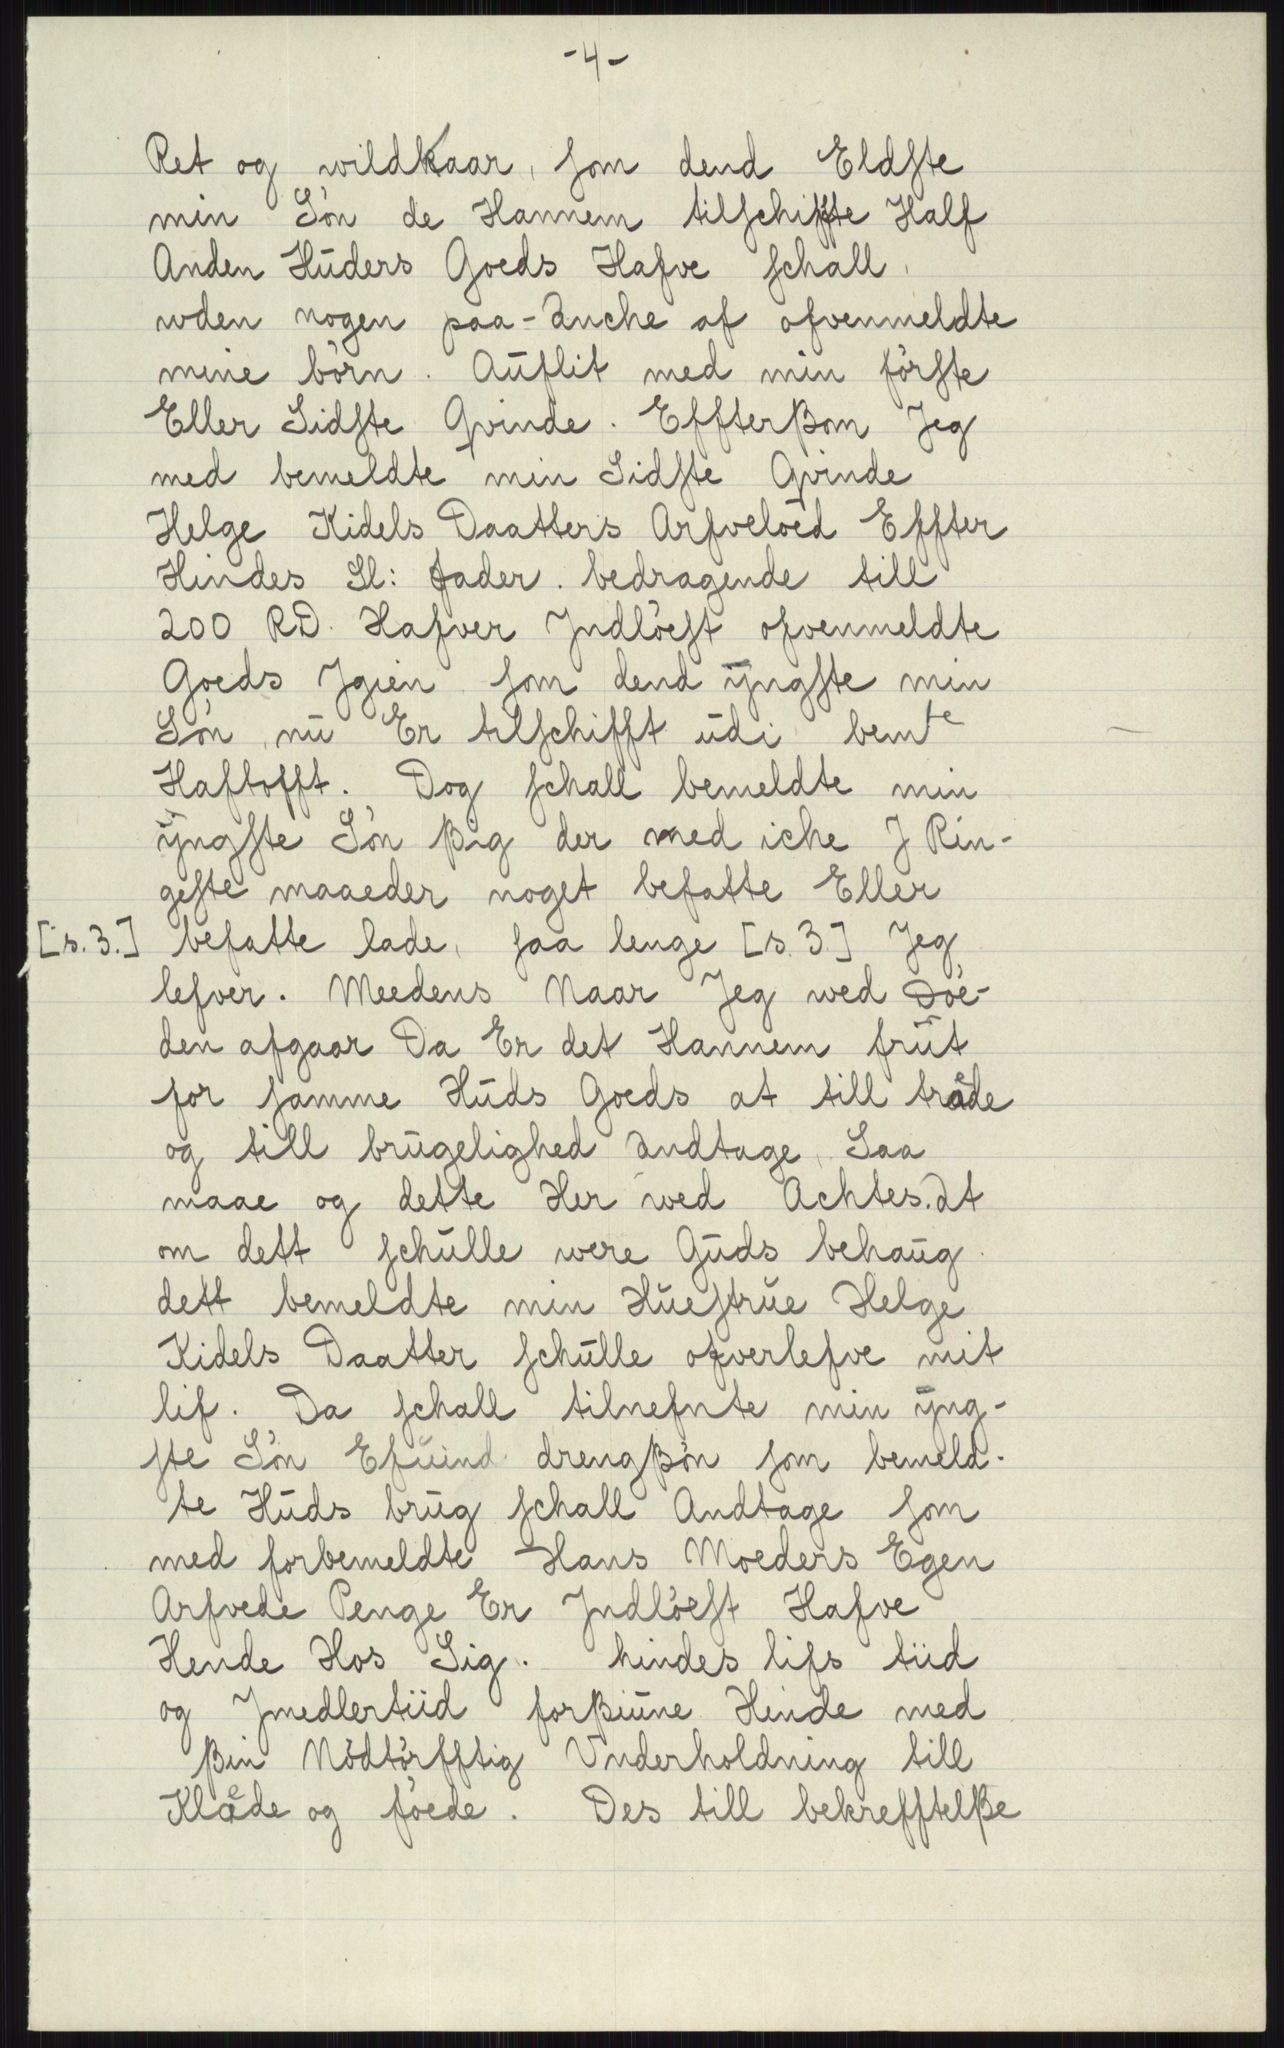 -4-
Ret og wildkaar, som dend Eldste
min Sön de Hannem tilschiffte Half
Anden Hüders Goeds Hafve schall,
uden nogen paa-anche af ofvenmeldte
mine börn. Aúflit med min förste
Eller Sidste Qvinde. Effterßom Jeg
med bemeldte min Sidste Qvinde
Helge Kidels Daatters Arfveloed Effter
Hindes Sl: fader. bedragende till
200 RD. Hafver Jndlöest ofvenmeldte
Goeds Jgien som dend ÿngste min
Sön, nü Er tilschifft üdi bemte
Haftofft. Dog schall bemeldte min
ÿngste Sön ßig der med iche J Rin-
geste maaeder noget befatte Eller
[s. 3.] befatte lade, saa lenge [s. 3.] Jeg
lefver. Meedens Naar Jeg wed Döe-
den afgaar Da Er det Hannem früt
for samme Hüds Goeds at till tråde
og till brügelighed andtage, Saa
maae og dette Her wed Achtes. At
om dett schülle were Güds behaüg
dett bemeldte min Hüestrüe Helge
Kidels Daatter schülle ofverlefve mit
lif. Da schall tilnefnte min ÿng-
ste Sön Efüind drengßön som bemeld-
te Hüds brüg schall Andtage som
med forbemeldte Hans Moeders Egen
Arfvede Penge Er Jndlöest Hafve
Hende Hos Sig. hindes lifs tiid
og Jmedlertiid forßiüne Hinde med
ßin Nödtörfftig Vnderholdning till
Klæde og föede. Des till bekrefftelße